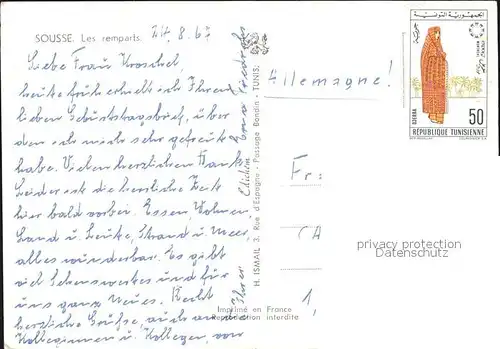 SOUSSE. Les remparts.
24. 8. 67
Liebe Frau Kroschel,
heute früh erhielt ich Ihren
lieben Geburtstagsbrief, über
den ich mich sehr gefreut
habe. Vielen herzlichen Dank.
Leider ist die herrliche Zeit
hier bald vorbei. Essen, Wohnen,
Land u. Leute, Strand u. Meer,
alles wunderbar. Es gibt
viel Sehenswertes und für
uns ganz Neues. Recht
herzliche Grüße, auch an die
Kolleginnen u. Kollegen, von
Ihrer
H. ISMAIL 3, Rue d'Espagne - Passage Bondin - TUNIS
Imprimé en France
Reproduction interdite
Allemagne!
Fr:
1,
privacy protection
Datenschutz
الجمهورية التونسية
DJERBA
50
REPUBLIQUE TUNISIENNE